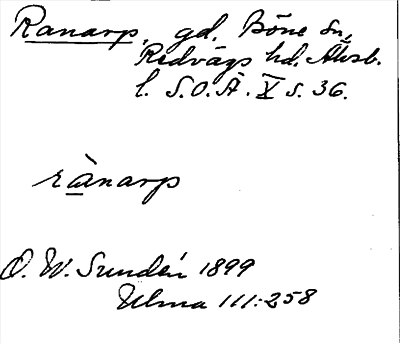 Ranarp, gd, Böne sn,
Redvägs hd. Älvsb.
l. S.O.Ä. X s. 36.
rànarp
O. W. Sundén 1899
Ulma 111:258